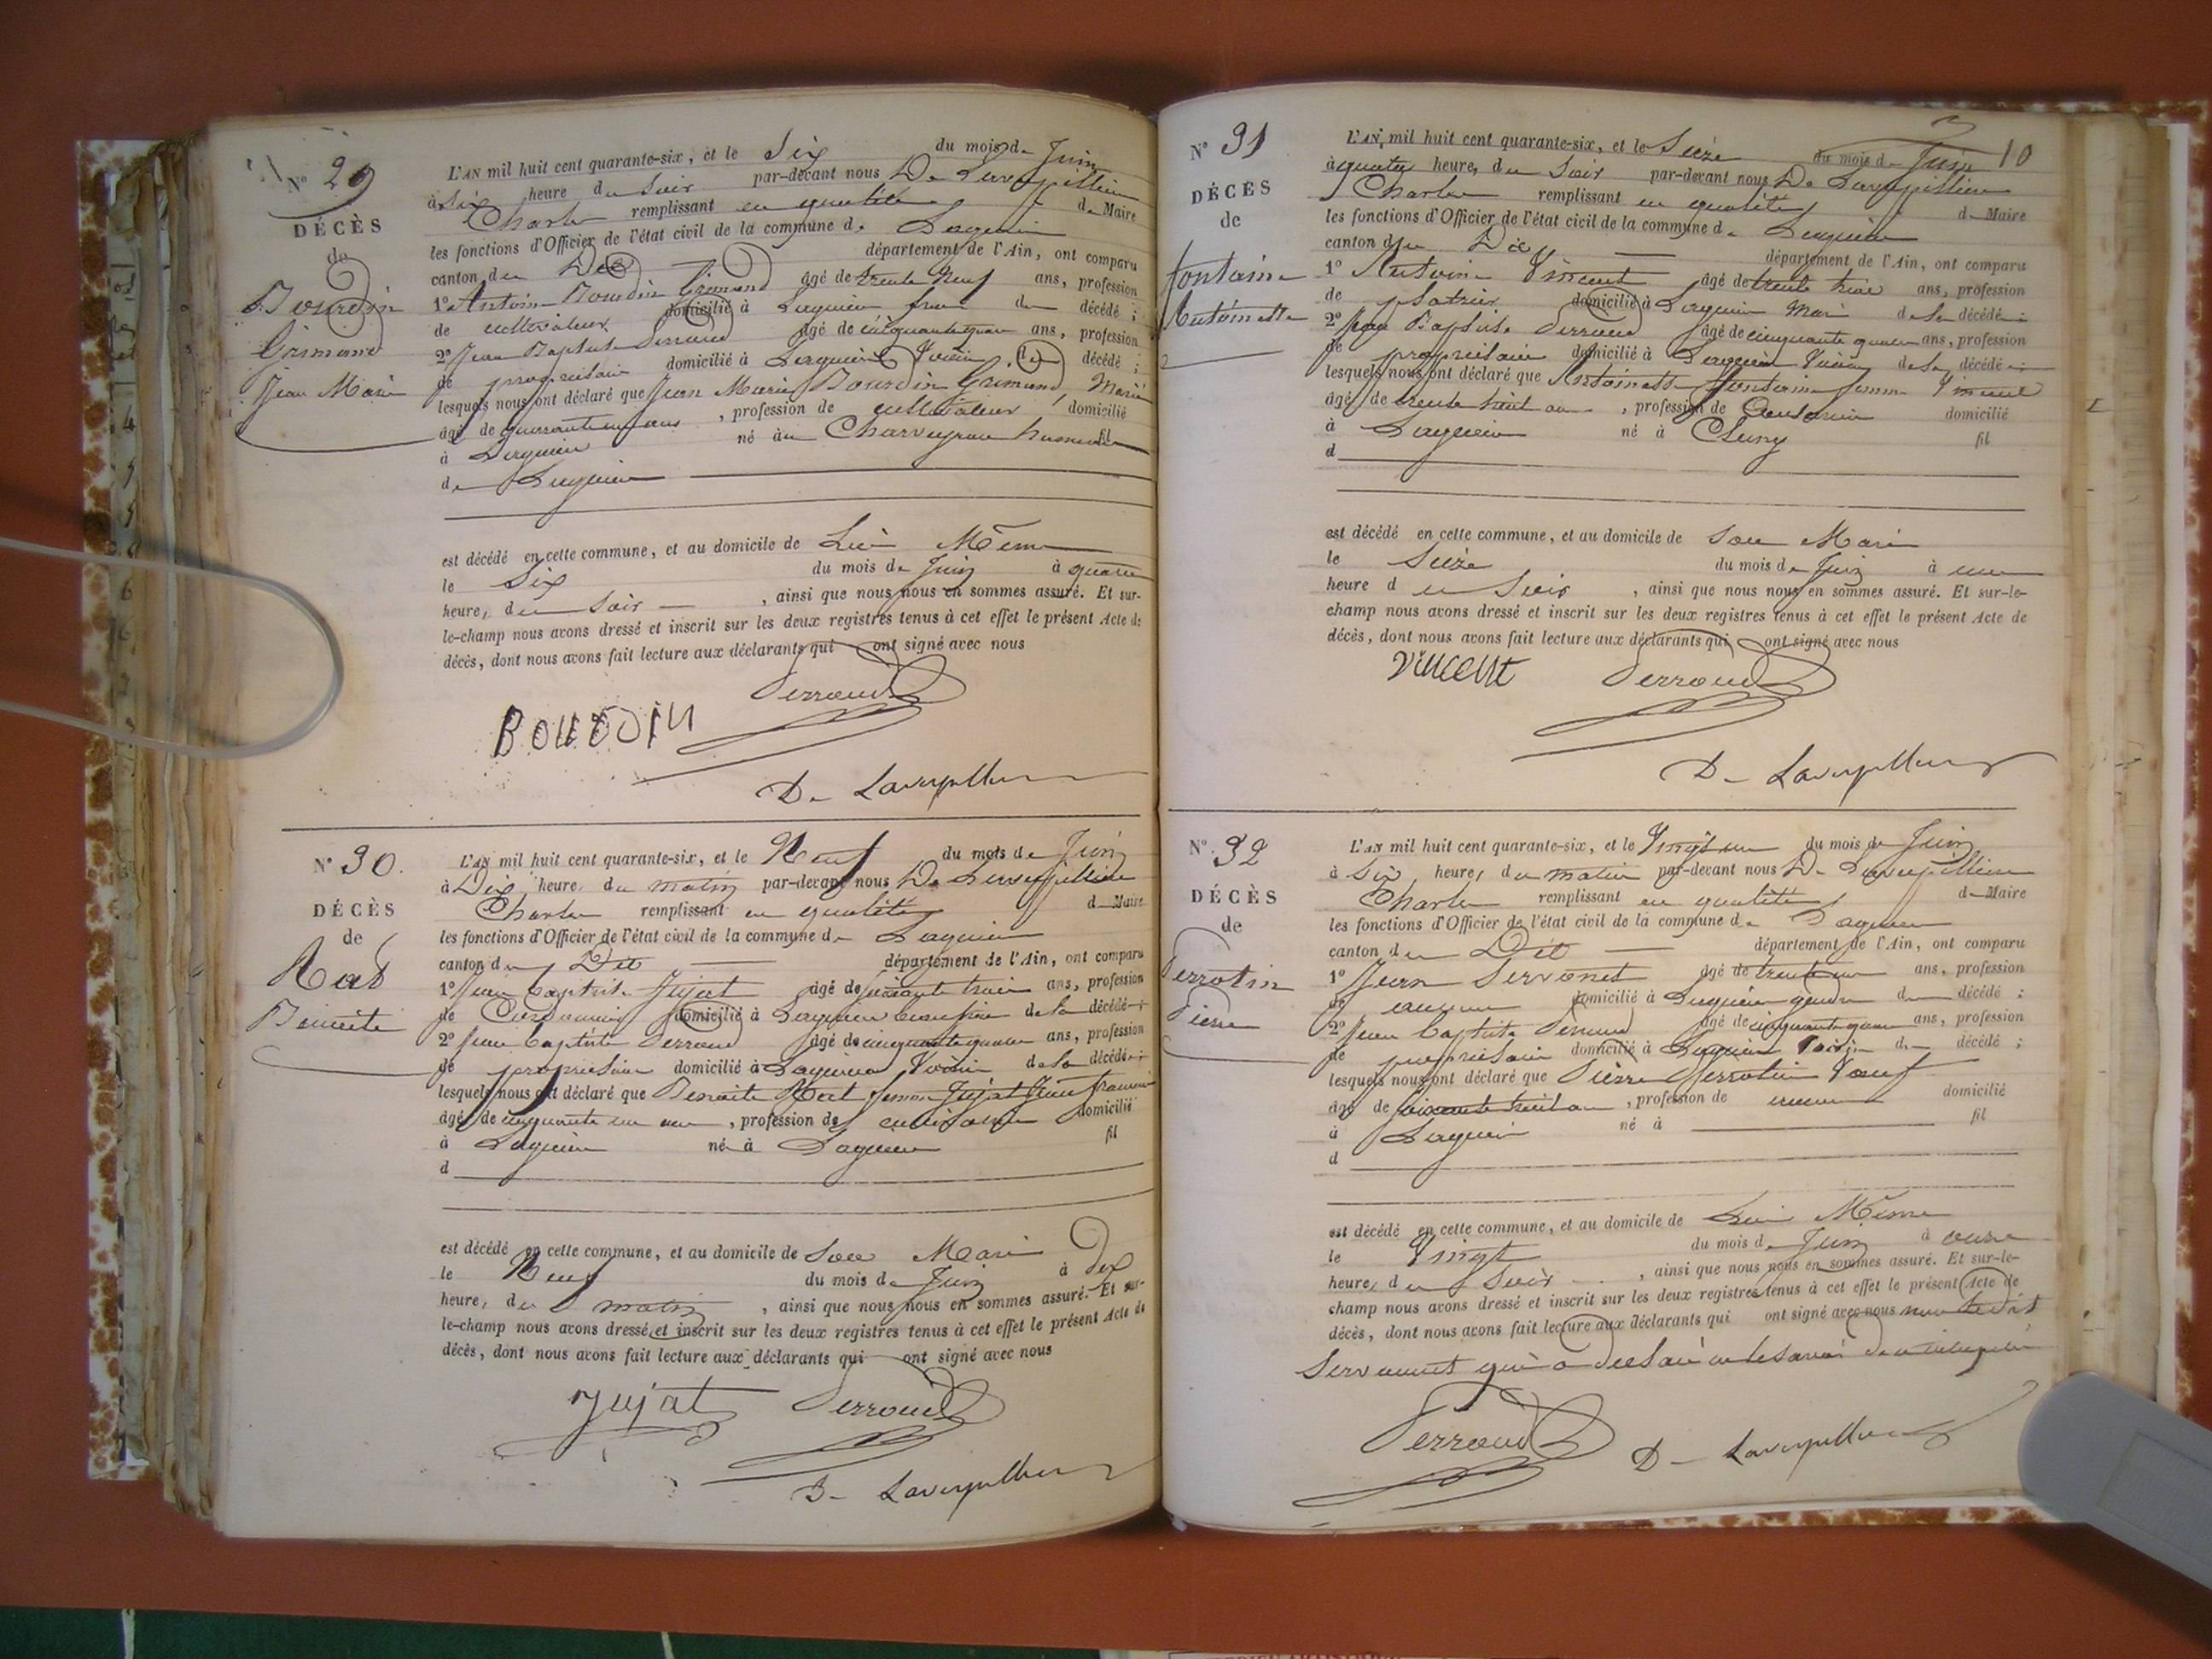 N° 29
DÉCÈS
de
Bourdin
Grimand
Jean Marie
L'AN mil huit cent quarante-six, et le Six du mois de Juin
à Six heure du Soir par-devant nous De Laverpillière
Charles remplissant en qualité de Maire
les fonctions d'Officier de l'état civil de la commune de Lagnieu
canton du Dit département de l'Ain, ont comparu
1° Antoine Bourdin Grimand âgé de trente neuf ans, profession
de cultivateur domicilié à Lagnieu frere du décédé ;
2° Jean Baptiste Perroud âgé de cinquante quatre ans, profession
de propriétaire domicilié à Lagnieu Voisin du décédé ;
lesquels nous ont déclaré que Jean Marie Bourdin Grimand, Marié
âgé de quarante ans, profession de cultivateur domicilié
à Lagnieu né à Charveyron hameau fil
de Lagnieu
est décédé en cette commune, et au domicile de Lui Même
le Six du mois de Juin à quatre
heure, du Soir, ainsi que nous nous en sommes assuré. Et sur-
le-champ nous avons dressé et inscrit sur les deux registres tenus à cet effet le présent Acte de
décès, dont nous avons fait lecture aux déclarants qui ont signé avec nous
Perroud
BOURDIN
De Laverpillière
N° 30.
DÉCÈS
de
Rat
Benoite
L'AN mil huit cent quarante-six, et le Neuf du mois de Juin
à Dix heure, du matin par-devant nous De Laverpillière
Charles remplissant en qualité de Maire
les fonctions d'Officier de l'état civil de la commune de Lagnieu
canton du Dit département de l'Ain, ont comparu
1° Jean Baptiste Jujat âgé de trois ans, profession
de Cordonnier domicilié à Lagnieu beau frère de la décédé ;
2° Jean Baptiste Perroud âgé de cinquante quatre ans, profession
de propriétaire domicilié à Lagnieu Voisin de la décédé ;
lesquels nous ont déclaré que Benoite Rat femme Jujat Jean francois
âgé de cinquante un ans, profession de domicilié
à Lagnieu né à Lagnieu fil
d
est décédé en cette commune, et au domicile de Son Mari
le Neuf du mois de Juin à Dix
heure, du matin, ainsi que nous nous en sommes assuré. Et sur-
le-champ nous avons dressé et inscrit sur les deux registres tenus à cet effet le présent Acte de
décès, dont nous avons fait lecture aux déclarants qui ont signé avec nous
Jujat Perroud
De Laverpillière
10
N° 31
DÉCÈS
de
fontaine
Antoinette
L'AN mil huit cent quarante-six, et le Seize du mois de Juin
à quatre heure, du Soir par-devant nous De Laverpillière
Charles remplissant en qualité de Maire
les fonctions d'Officier de l'état civil de la commune de Lagnieu
canton du Dit département de l'Ain, ont comparu
1° Antoine Vincent âgé de trente ans, profession
de platrier domicilié à Lagnieu Mari de la décédé ;
2° Jean Baptiste Perroud âgé de cinquante quatre ans, profession
de propriétaire domicilié à Lagnieu Voisin de la décédé ;
lesquels nous ont déclaré que Antoinette fontaine femme Vincent
âgé de trente huit ans, profession de domicilié
à Lagnieu né à Cluny fil
d
est décédé en cette commune, et au domicile de Son Mari
le Seize du mois de Juin à une
heure du Soir, ainsi que nous nous en sommes assuré. Et sur-le-
champ nous avons dressé et inscrit sur les deux registres tenus à cet effet le présent Acte de
décès, dont nous avons fait lecture aux déclarants qui ont signé avec nous
Vincent Perroud
De Laverpillière
N° 32
DÉCÈS
de
Perrotin
Pierre
L'AN mil huit cent quarante-six, et le Vingt un du mois de Juin
à Six heure, du matin par-devant nous De Laverpillière
Charles remplissant en qualité de Maire
les fonctions d'Officier de l'état civil de la commune de Lagnieu
canton du Dit département de l'Ain, ont comparu
1° Jean Servonet âgé de trente ans, profession
de aucune domicilié à Lagnieu gendre du décédé ;
2° Jean Baptiste Perroud âgé de cinquante quatre ans, profession
de propriétaire domicilié à Lagnieu Voisin du décédé ;
lesquels nous ont déclaré que Pierre Perrotin Veuf
âgé de soixante huit ans, profession de aucune domicilié
à Lagnieu né à fil
d
est décédé en cette commune, et au domicile de Lui Même
le Vingt du mois de Juin à onze
heure, du Soir, ainsi que nous nous en sommes assuré. Et sur-le-
champ nous avons dressé et inscrit sur les deux registres tenus à cet effet le présent Acte de
décès, dont nous avons fait lecture aux déclarants qui ont signé avec nous non le dit
Servonnet qui a déclaré ne le savoir
Perroud De Laverpillière